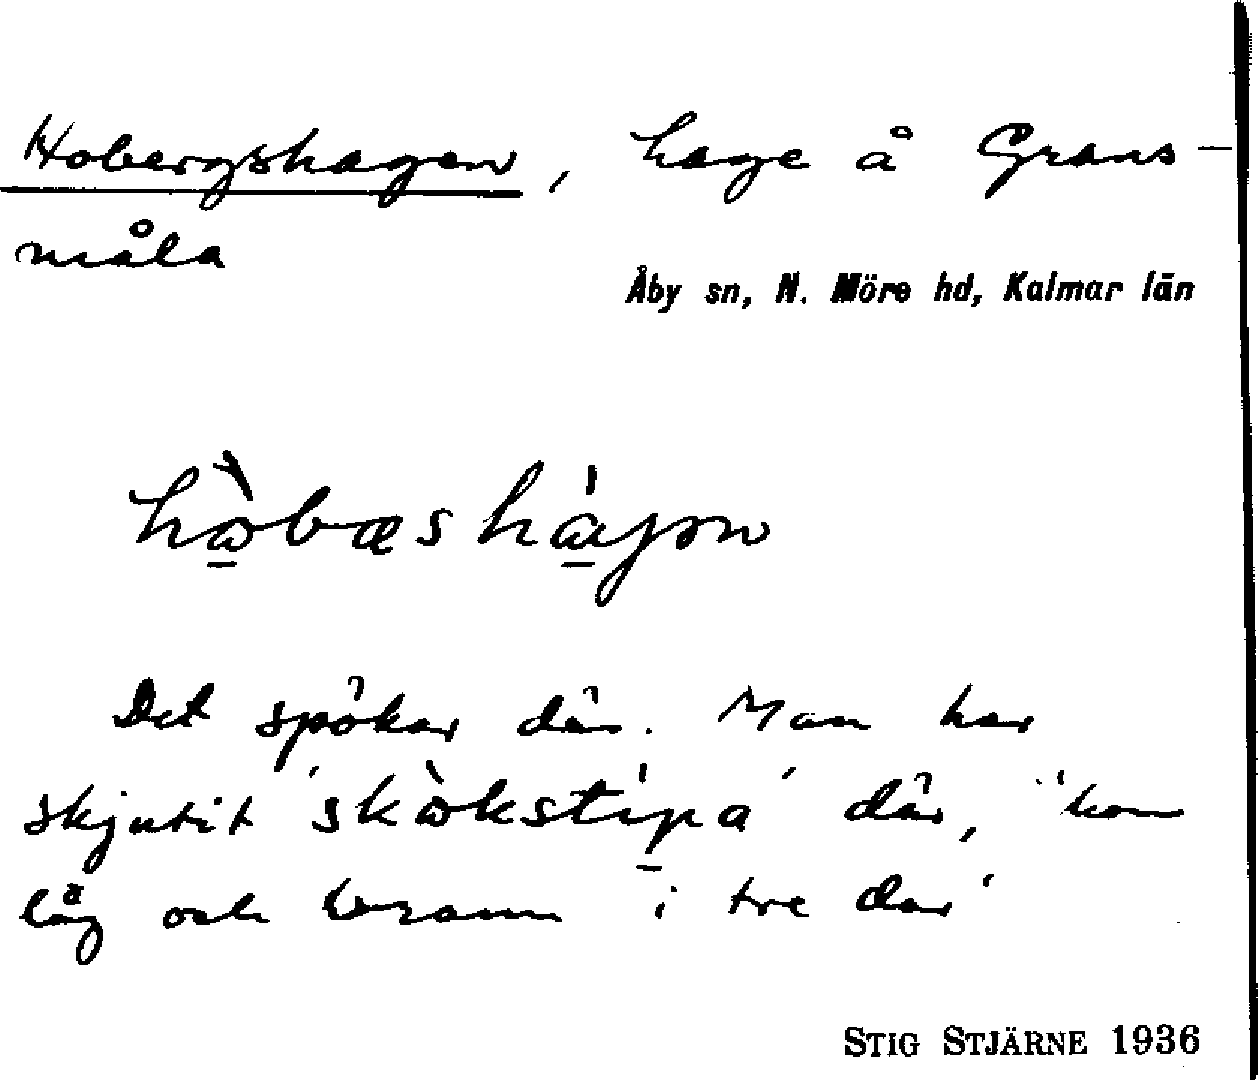 Hobergshagen, hage å Grans-
måla
Åby sn, N. Möre hd, Kalmar län
hɷ̀bæshájən
Det spökar där. Man har
skjutit 'skɷ̀kstípa' där, "hon
låg och brann i tre dar"
STIG STJÄRNE 1936